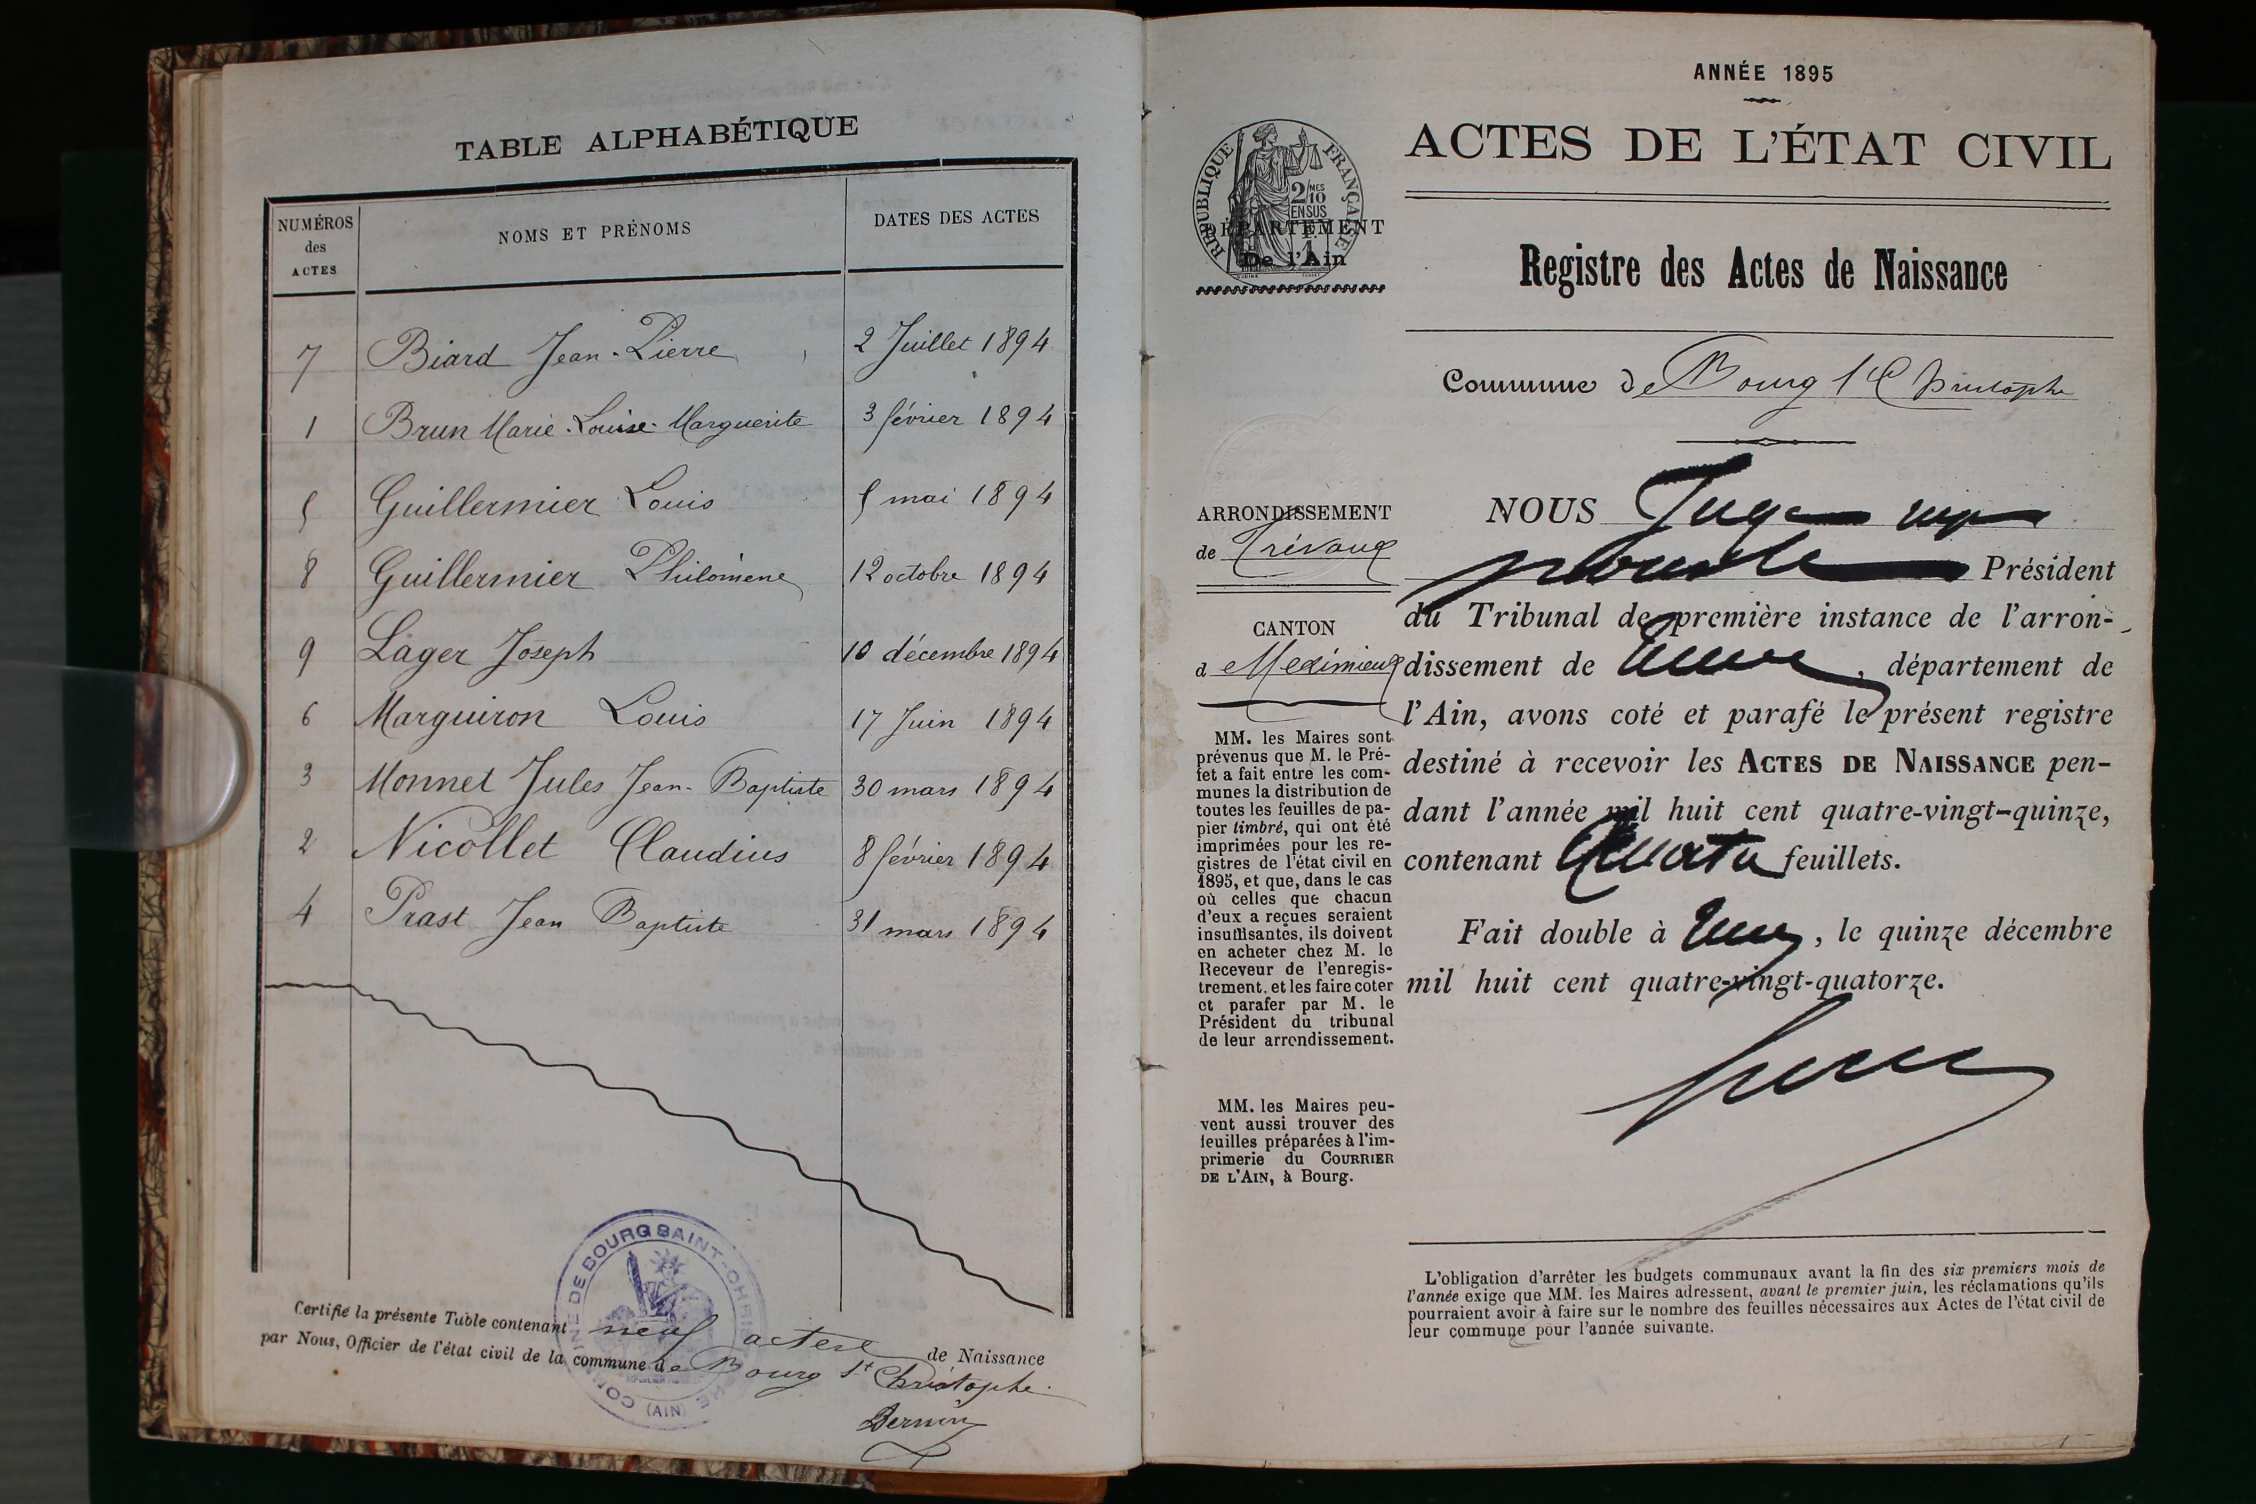 TABLE ALPHABÉTIQUE
NUMÉROS
des
ACTES
NOMS ET PRÉNOMS
DATES DES ACTES
7 Biard Jean-Pierre 2 Juillet 1894
1 Brun Marie-Louise-Marguerite 3 février 1894
5 Guillermier Louis 5 mai 1894
8 Guillermier Philomène 12 octobre 1894
9 Lager Joseph 10 décembre 1894
6 Marguiron Louis 17 Juin 1894
3 Monnet Jules Jean-Baptiste 30 mars 1894
2 Nicollet Claudius 8 février 1894
4 Prast Jean Baptiste 31 mars 1894
COMMUNE DE BOURG SAINT-CHRISTOPHE
(AIN)
Certifié la présente Table contenant neuf actes de Naissance
par Nous, Officier de l'état civil de la commune de Bourg St Christophe.
Bernin
ANNÉE 1895
ACTES DE L'ÉTAT CIVIL
RÉPUBLIQUE FRANÇAISE
2/10 MES
EN SUS
DÉPARTEMENT
De l'Ain
Registre des Actes de Naissance
Commune de Bourg St Christophe
ARRONDISSEMENT
de Trévoux
CANTON
d Meximieux
MM. les Maires sont
prévenus que M. le Pré-
fet a fait entre les com-
munes la distribution de
toutes les feuilles de pa-
pier timbré, qui ont été
imprimées pour les re-
gistres de l'état civil en
1895, et que, dans le cas
où celles que chacun
d'eux a reçues seraient
insuffisantes, ils doivent
en acheter chez M. le
Receveur de l'enregis-
trement, et les faire coter
et parafer par M. le
Président du tribunal
de leur arrondissement.
MM. les Maires peu-
vent aussi trouver des
feuilles préparées à l'im-
primerie du COURRIER
DE L'AIN, à Bourg.
NOUS Juge
Président
du Tribunal de première instance de l'arron-
dissement de , département de
l'Ain, avons coté et parafé le présent registre
destiné à recevoir les ACTES DE NAISSANCE pen-
dant l'année mil huit cent quatre-vingt-quinze,
contenant feuillets.
Fait double à , le quinze décembre
mil huit cent quatre-vingt-quatorze.
L'obligation d'arrêter les budgets communaux avant la fin des six premiers mois de
l'année exige que MM. les Maires adressent, avant le premier juin, les réclamations qu'ils
pourraient avoir à faire sur le nombre des feuilles nécessaires aux Actes de l'état civil de
leur commune pour l'année suivante.